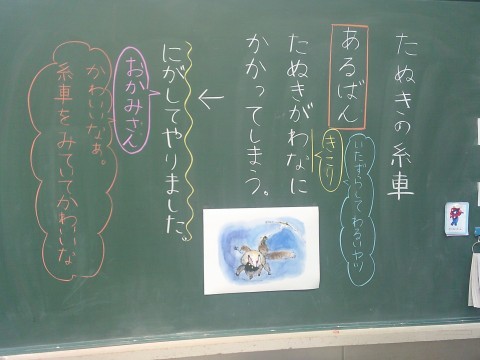 たぬきの糸車
いたずらしてわるいヤツ
あるばん
きこり
たぬきがわなに
かかってしまう。
←
にがしてやりました。
おかみさん
かわいいなぁ。
糸車をみていてかわいいな